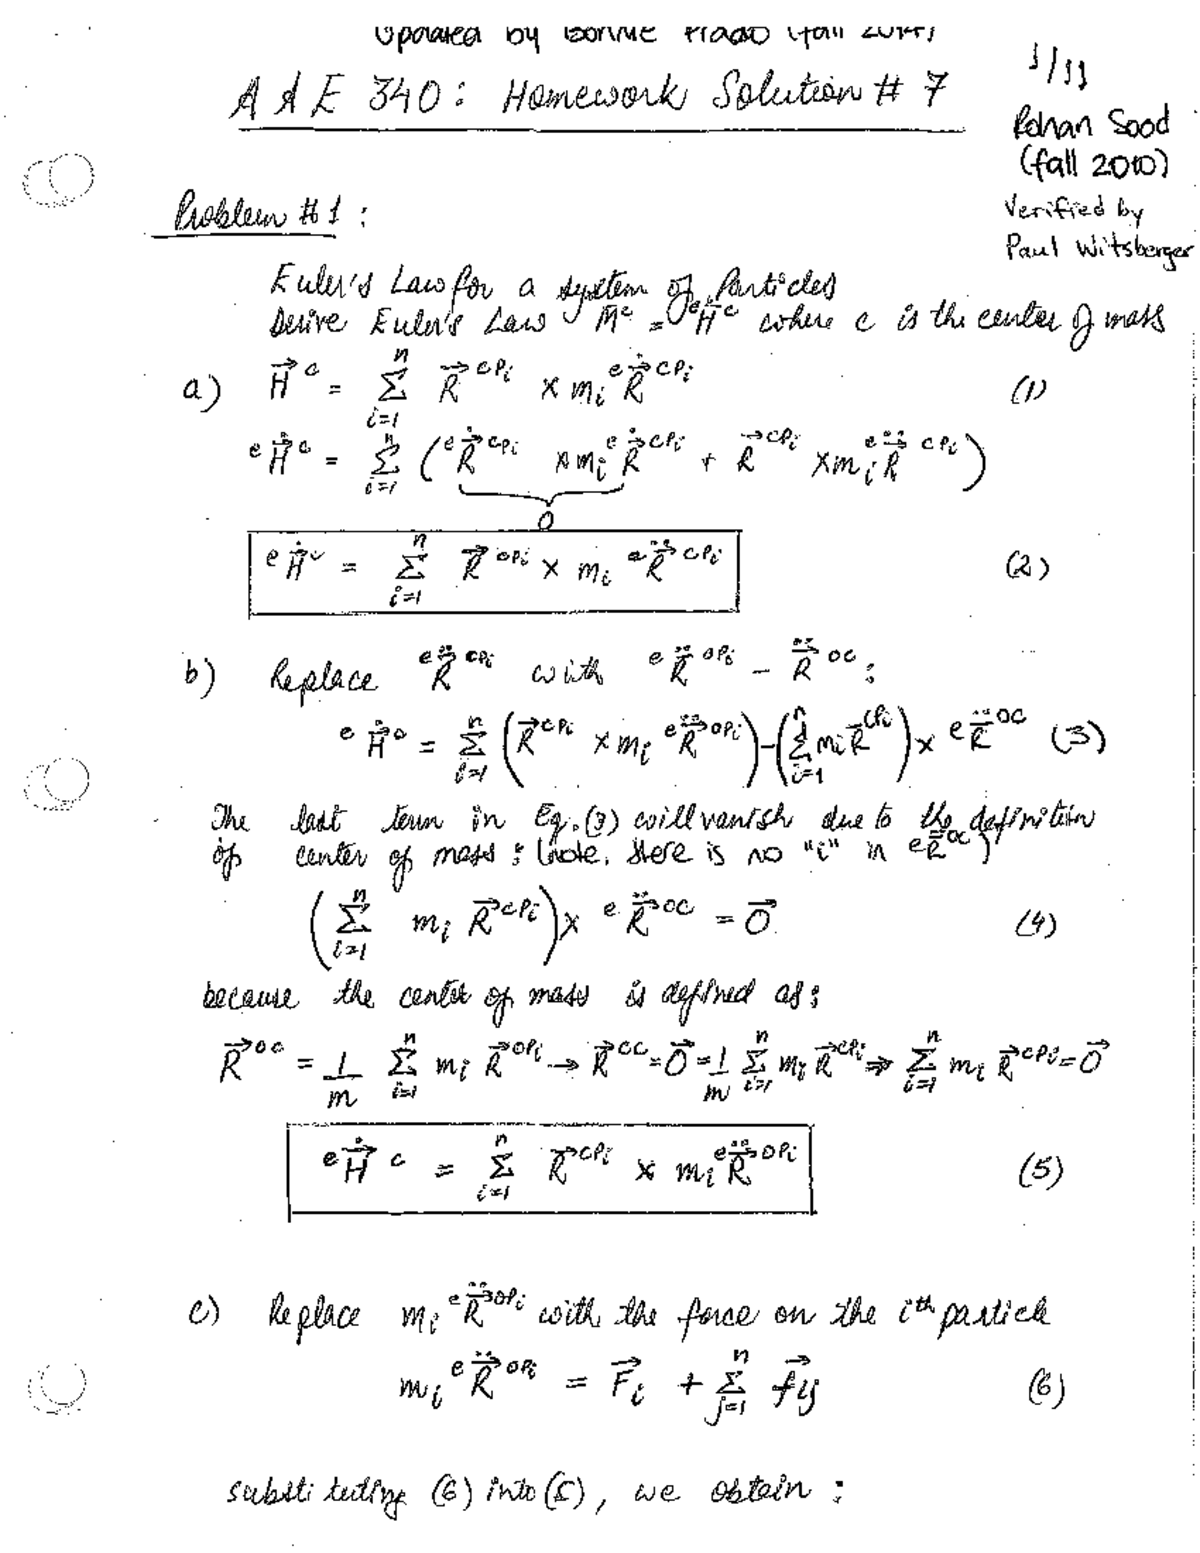 Updated by Bonnie Prado (fall 2014)
1/11
AAE 340: Homework Solution # 7
Rohan Sood
(fall 2010)
Verified by
Paul Witsberger
Problem #1:
Euler's Law for a system of Particles
Derive Euler's Law M⃗ᶜ = ᵉH⃗̇ᶜ where c is the center of mass
a) H⃗ᶜ = Σ_{i=1}^{n} R⃗^{CPi} × mᵢ ᵉR⃗̇^{CPi} (1)
ᵉH⃗̇ᶜ = Σ_{i=1}^{n} (ᵉR⃗̇^{CPi} × mᵢ ᵉR⃗̇^{CPi} + R⃗^{CPi} × mᵢ ᵉR⃗̈^{CPi})
0
ᵉH⃗̇ᶜ = Σ_{i=1}^{n} R⃗^{CPi} × mᵢ ᵉR⃗̈^{CPi} (2)
b) Replace ᵉR⃗̈^{CPi} with ᵉR⃗̈^{OPi} − R⃗̈^{OC}:
ᵉH⃗̇ᶜ = Σ_{i=1}^{n} (R⃗^{CPi} × mᵢ ᵉR⃗̈^{OPi}) − (Σ_{i=1}^{n} mᵢ R⃗^{CPi}) × ᵉR⃗̈^{OC} (3)
The last term in Eq.(3) will vanish due to the definition
of center of mass: (note, there is no "i" in ᵉR⃗̈^{OC})
(Σ_{i=1}^{n} mᵢ R⃗^{CPi}) × ᵉR⃗̈^{OC} = 0⃗ (4)
because the center of mass is defined as:
R⃗^{OC} = 1/m Σ_{i=1}^{n} mᵢ R⃗^{OPi} → R⃗^{CC} = 0⃗ = 1/m Σ_{i=1}^{n} mᵢ R⃗^{CPi} ⇒ Σ_{i=1}^{n} mᵢ R⃗^{CPi} = 0⃗
ᵉH⃗̇ᶜ = Σ_{i=1}^{n} R⃗^{CPi} × mᵢ ᵉR⃗̈^{OPi} (5)
c) Replace mᵢ ᵉR⃗̈^{OPi} with the force on the iᵗʰ particle
mᵢ ᵉR⃗̈^{OPi} = F⃗ᵢ + Σ_{j=1}^{n} f⃗ᵢⱼ (6)
substituting (6) into (5), we obtain: